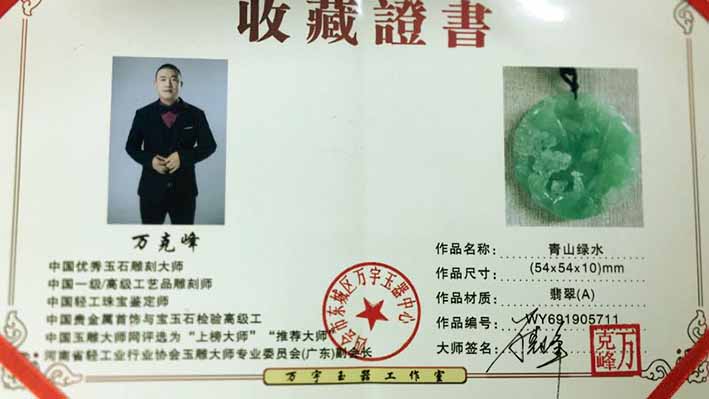 收藏證書
万克峰
中国优秀玉石雕刻大师
中国一级/高级工艺品雕刻师
中国轻工珠宝鉴定师
中国贵金属首饰与宝玉石检验高级工
中国玉雕大师网评选为“上榜大师”“推荐大师”
河南省轻工业行业协会玉雕大师专业委员会(广东)副会长
四会市东城区万宇玉器中心
作品名称： 青山绿水
作品尺寸： (54x54x10)mm
作品材质： 翡翠(A)
作品编号： WY691905711
大师签名：
万克峰
万宇玉器工作室